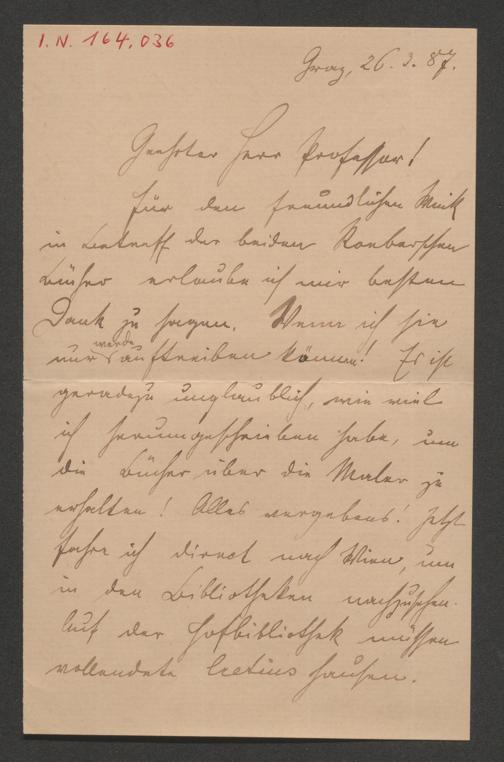 I. N. 164.036
Graz, 26. 3. 87.
Geehrter Herr Professor!
Für den freundlichen Wink
in Betreff der beiden
Bücher erlaube ich mir besten
Dank zu sagen. Wenn ich sie
nur werde auftreiben können! Es ist
geradezu unglaublich, wie viel
ich herumgeschrieben habe, um
die Bücher über die Maler zu
erhalten! Alles vergebens! Jetzt
fahre ich direct nach Wien, um
in den Bibliotheken nachzusehen.
Auf der Hofbibliothek müssen
vollendete Cretins hausen.